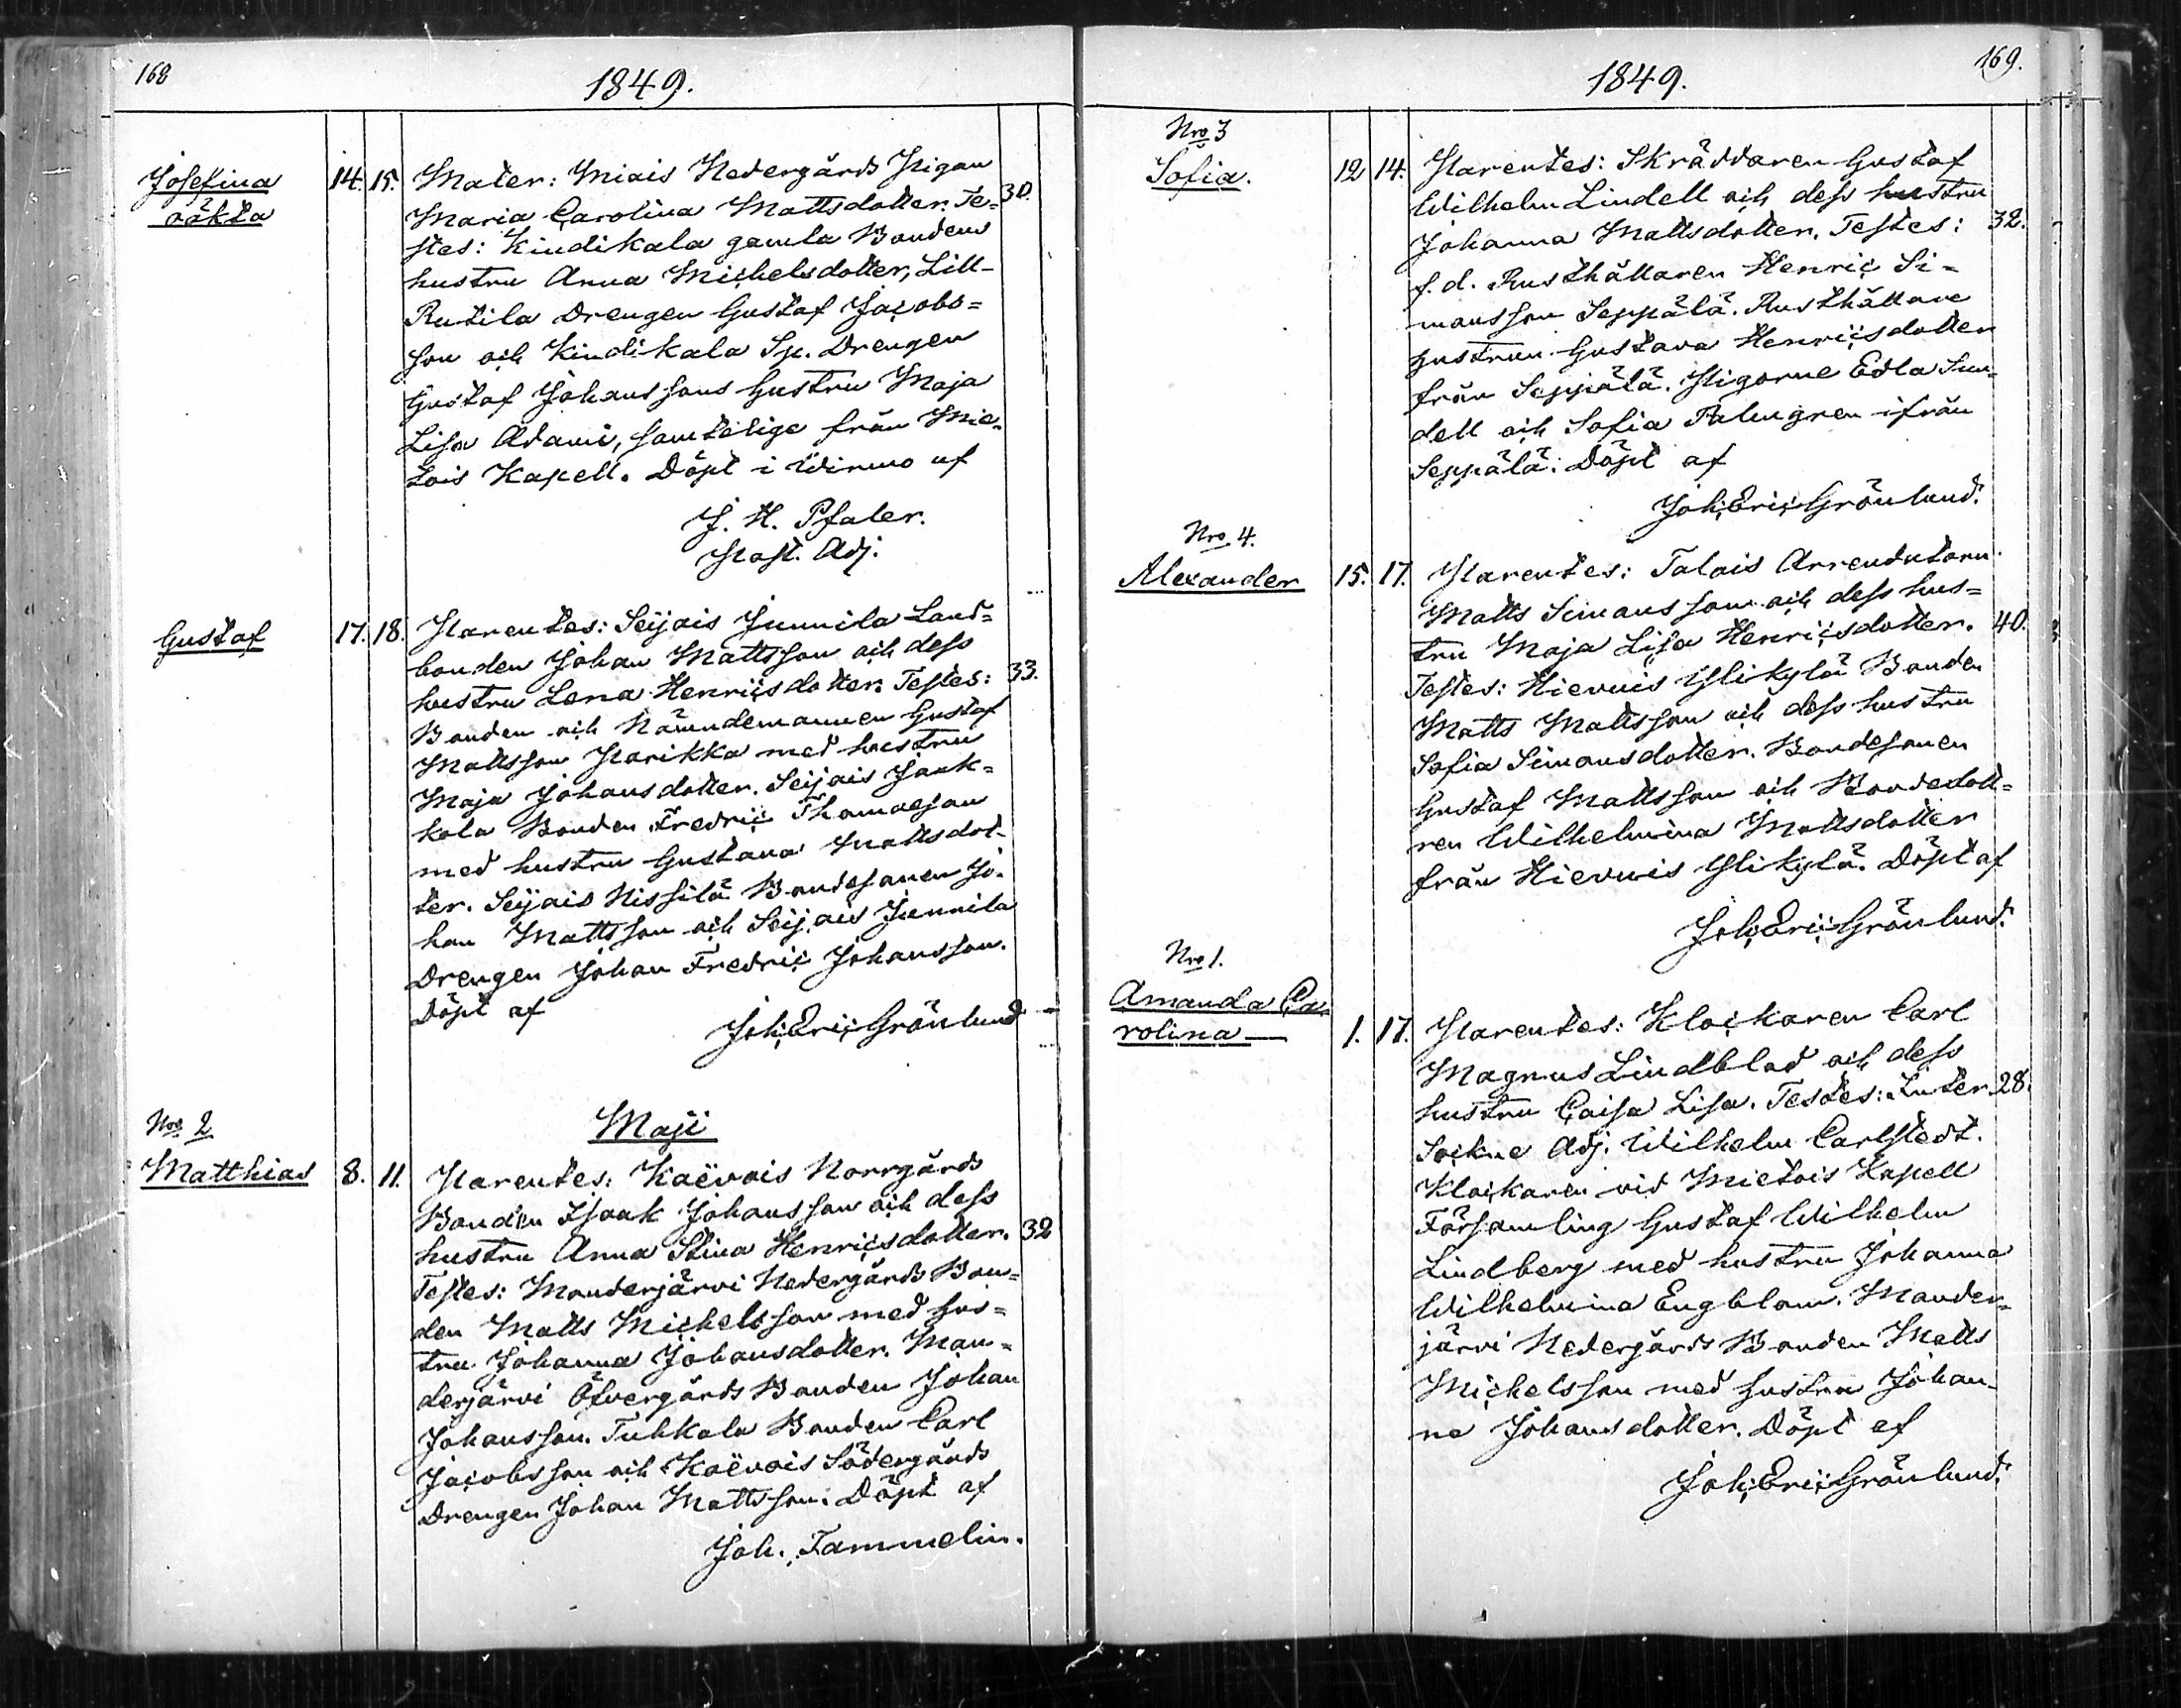 168
1849.
Josefina
oäkta
14. 15. Mater: Miais Nedergårds Pigan
Maria Carolina Mattsdotter. Te- 30.
stes: Kindikala gamla Bondens
hustru Anna Michelsdotter, Lill-
Rutila Drengen Gustaf Jacobs=
son och Kindikala Sp. Drengen
Gustaf Johanssons hustru Maja
Lisa Adami, samtelige från Mie-
tois Kapell. Döpt i Wirmo af
J. H. Pfaler.
Past. Adj.
Gustaf 17. 18. Parentes: Seijais Junnila Land=
bonden Johan Mattsson och dess
hustru Lena Henricsdotter. Testes: 33.
Bonden och Nämndemannen Gustaf
Mattsson Parikka med hustru
Maja Johansdotter. Seijais Jaak=
kola Bonden Fredric Thomasson
med hustru Gustava Mattsdot-
ter. Seijais Nissilä Bondesonen Jo-
han Mattsson och Seijais Junnila
Drengen Johan Fredric Johansson.
Döpt af
Joh: Eric: Grönlund
Maji
Nro 2
Matthias 8. 11. Parentes: Kaëvois Norrgårds
Bonden Isaak Johansson och dess
hustru Anna Stina Henricsdotter. 32
Testes: Monderjärvi Nedergårds Bon=
den Matts Michelsson med hus=
tru Johanna Johansdotter. Mon=
derjärvi Öfvergårds Bonden Johan
Johansson. Tuhkala Bonden Carl
Jacobsson och Kaëvois Södergårds
Drengen Johan Mattsson. Döpt af
Joh. Tammelin.
169.
1849.
Nro 3
Sofia. 12 14. Parentes: Skräddaren Gustaf
Wilhelm Lindell och dess hustru
Johanna Mattsdotter. Testes: 32.
f. d. Rusthållaren Henric Si=
mansson Seppälä. Rusthållare
hustrun Gustava Henricsdotter
från Seppälä. Pigorne Edla Sun-
dell och Sofia Palmgren ifrån
Seppälä: Döpt af
Joh: Eric: Grönlund.
Nro 4.
Alexander 15. 17. Parentes: Talois Arrendatorn
Matts Simansson och dess hus=
tru Maja Lisa Henricsdotter. 40.
Testes: Hiervois Ylikylä Bonden
Matts Mattsson och dess hustru
Sofia Simonsdotter. Bondesonen
Gustaf Mattsson och Bondedott=
ren Wilhelmina Mattsdotter
från Hiervois Ylikylä. Döpt af
Joh: Eric: Grönlund.
Nro 1.
Amanda Ca-
rolina — 1. 17. Parentes: Klockaren Carl
Magnus Lindblad och dess
hustru Caisa Lisa. Testes: Inter 28.
Sockne Adj. Wilhelm Carlstedt.
Klockaren vid Mietois Kapell
Församling Gustaf Wilhelm
Lindberg med hustru Johanna
Wilhelmina Engblom. Monder-
järvi Nedergårds Bonden Matts
Michelsson med hustru Johan-
na Johansdotter. Döpt af
Joh: Eric: Grönlund.